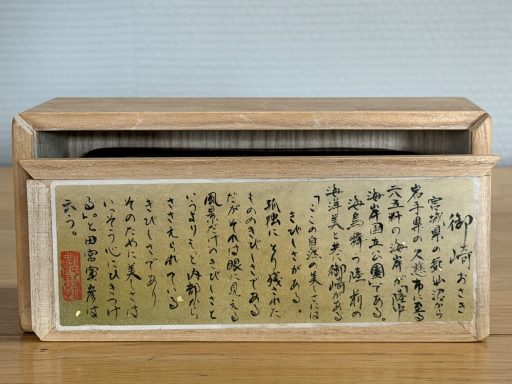 御崎 おさき
宮城県の気仙沼から
岩手県の久慈市に至る
海岸国立公園である。
海岸美と共に御崎がある
「この自然の美しさには
きびしさがある。
孤独にとり残された
もののきびしさである
だがそれは眼に見える
風景だけのきびしさと
いうよりもと内部から
ささえられている
きびしさであり
そのために美しさは
いっそう心をひきつけ
る」。と田宮虎彦は
云う。